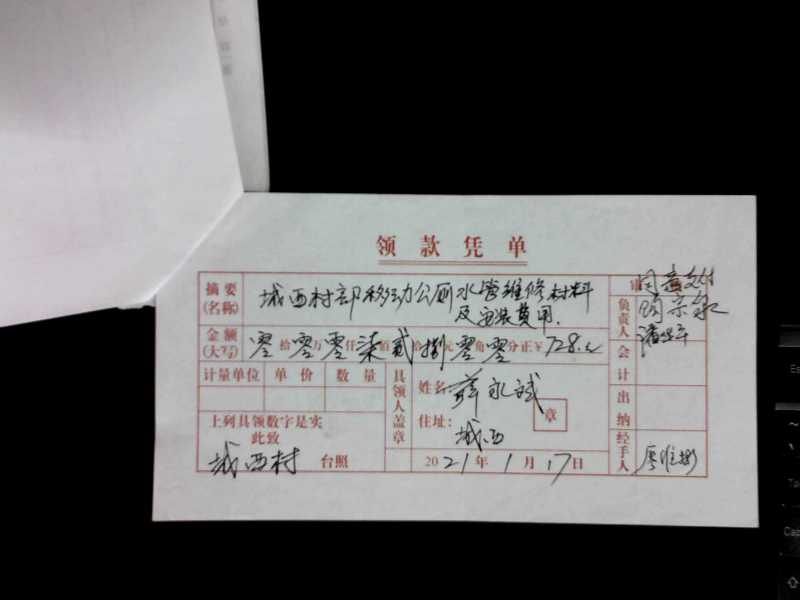 领款凭单
摘要(名称) 城西村部移动公厕水管维修材料
及安装费用.
金额(大写) 零拾零万零仟柒佰贰拾捌元零角零分正¥728.00
计量单位 单价 数量
上列具领数字是实
此致
城西村 台照
具领人盖章
姓名: 薛永斌
章
住址: 城西
2021年1月17日
同意支付
负责人
会计
出纳
经手人